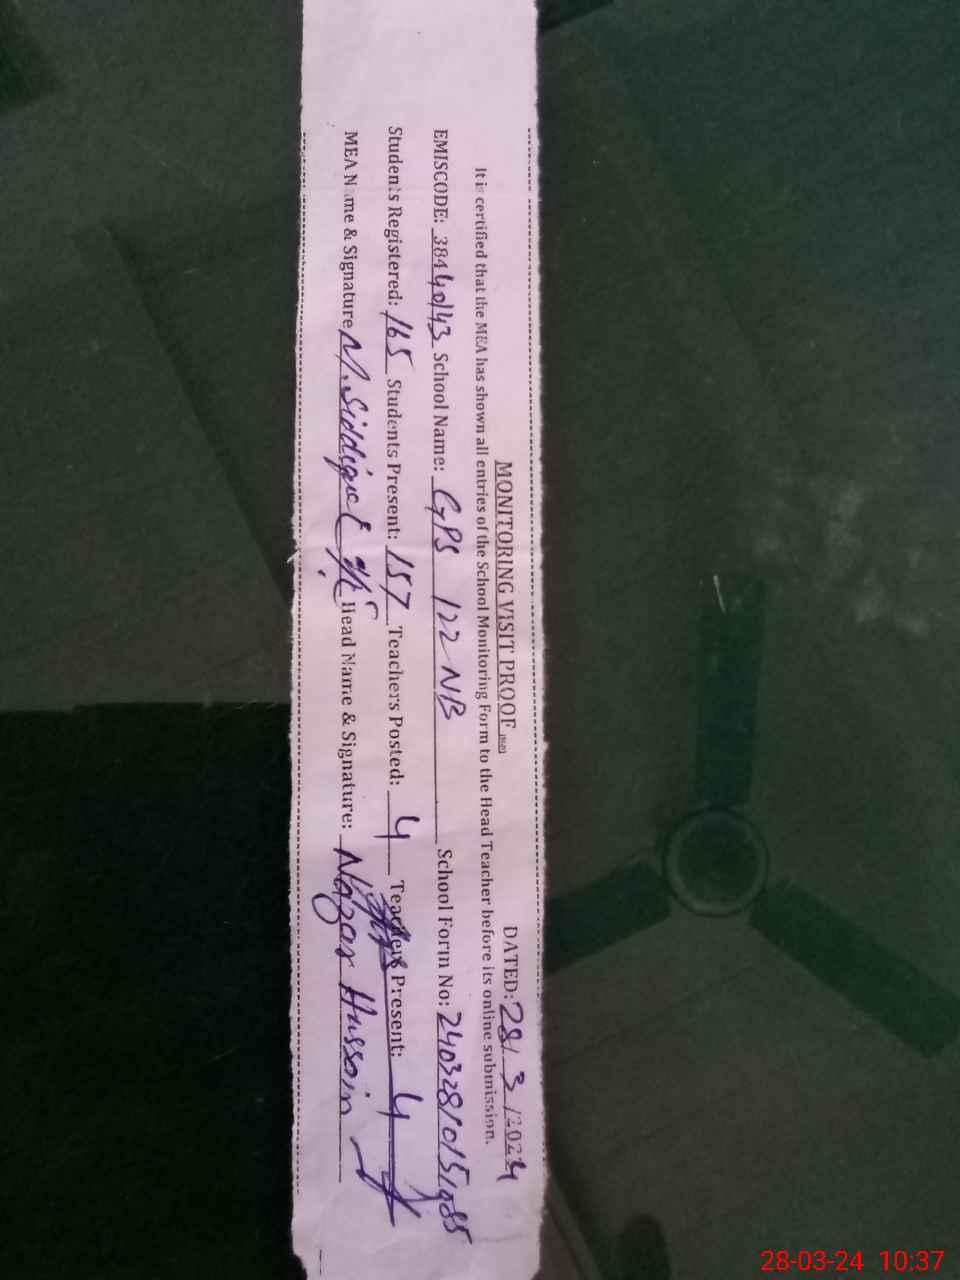 MONITORING VISIT PROOF
DATED: 28/3/2024
It is certified that the MEA has shown all entries of the School Monitoring Form to the Head Teacher before its online submission.
EMISCODE: 38440143 School Name: GPS 122 NB School Form No: 240328101510
Students Registered: 165 Students Present: 157 Teachers Posted: 4 Teachers Present: 4
MEA Name & Signature M. Siddique Head Name & Signature: Nazar Hussain
28-03-24 10:37